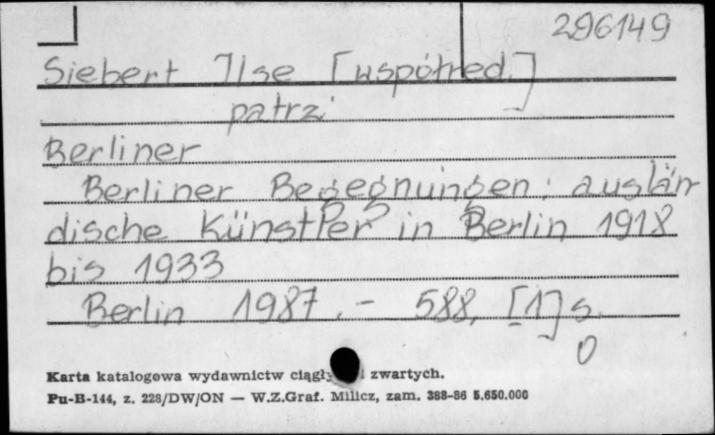 296149
Siebert Ilse [współred.]
patrz
Berliner
Berliner Begegnungen : auslän
dische Künstler in Berlin 1918
bis 1933
Berlin 1987. - 588, [1] s.
0
Karta katalogowa wydawnictw zwartych.
Pu-B-144, z. 228/DW/ON — W.Z.Graf. Milicz, zam. 388-86 5.650.000